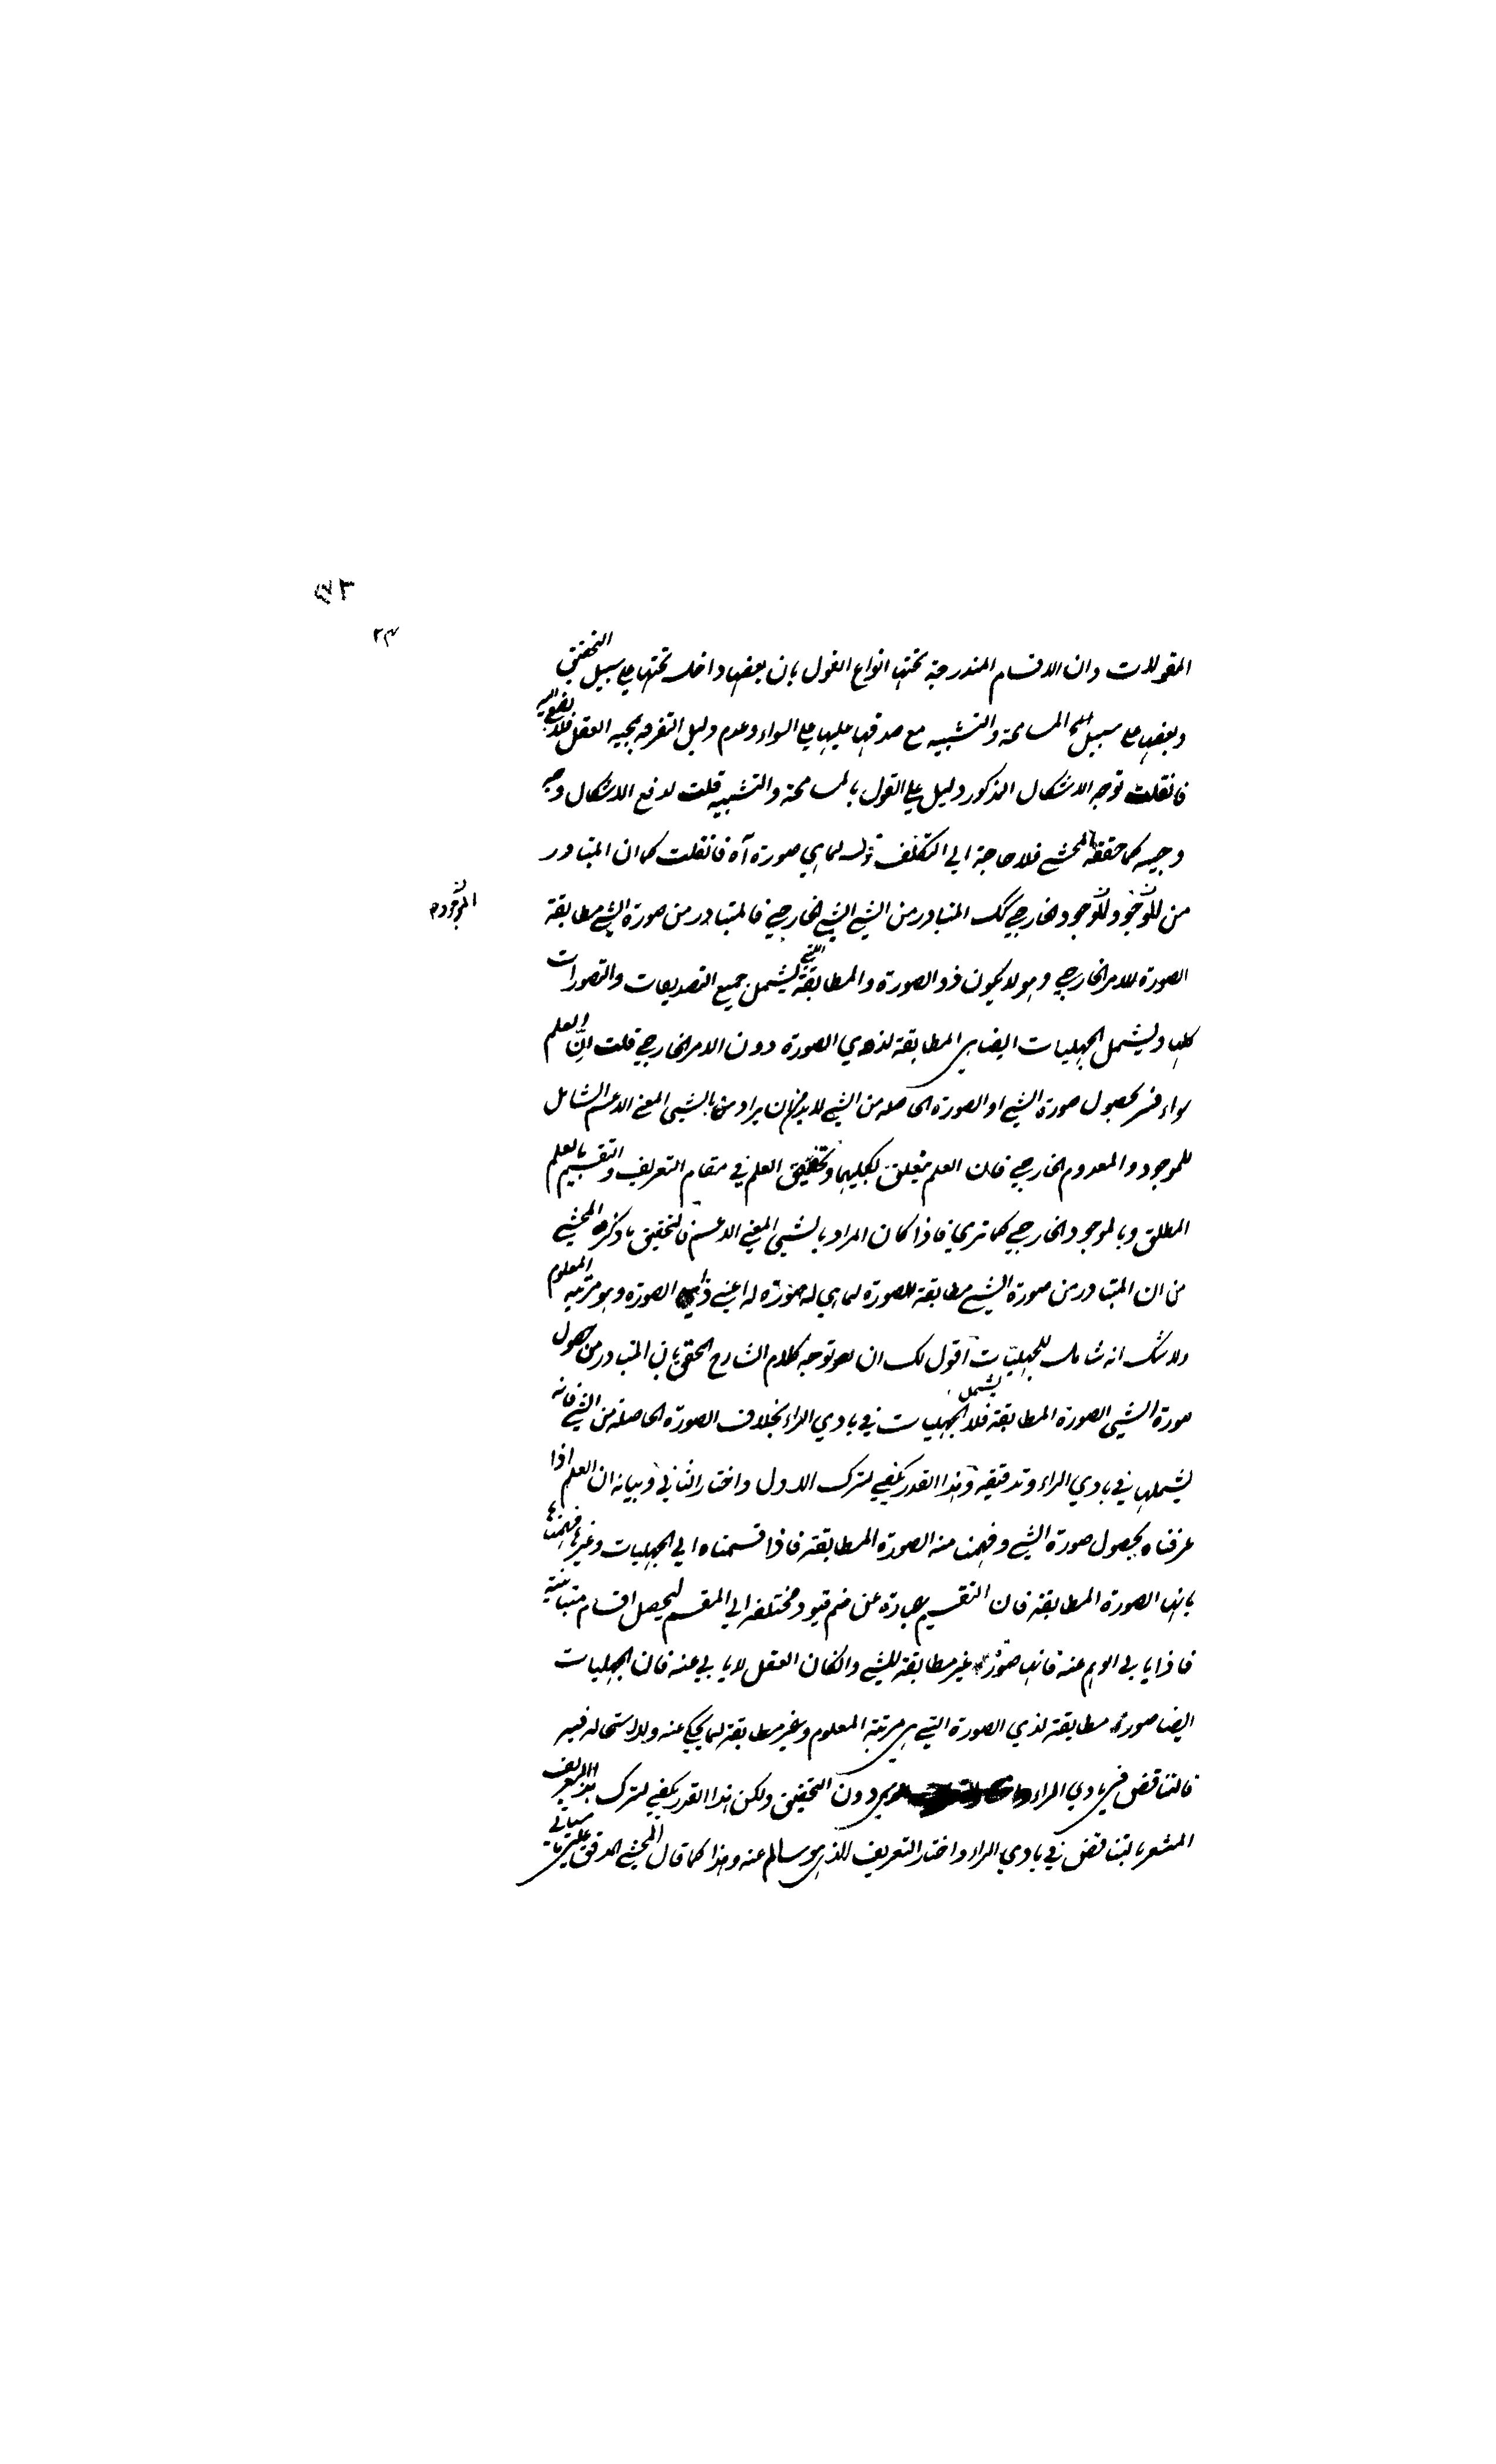 ٢٣
المقولات وان الاقسام المندرجة تحتها انواع القول بان بعضها داخلة تحتها على سبيل التحقيق
وبعضها على سبيل المسامحة والتشبيه مع صدقها عليها على السواء وعدم دليل التفرقة يمجه العقل
فانقلت توجه الاشكال المذكور دليل على القول بالمسامحة والتشبيه قلت لدفع الاشكال وجه
وجيه كما حققه المحشي فلا حاجة الى التكلف قوله لما هي صورة آه فانقلت كما ان المتبادر
من الموجود الموجود الخارجي كك المتبادر من الشيء الشيء الخارجي فالمتبادر من صورة الشيء مطابقة
الموجود
الصورة للامر الخارجي وهو لا يكون ذو الصورة والمطابقة التي يشمل جميع التصديقات والتصورات
كلها ويشمل الجهليات ايضا هي المطابقة لذي الصورة دون الامر الخارجي قلت ان العلم
سواء فسر بحصول صورة الشيء او الصورة الحاصلة من الشيء لا بد من ان يراد من الشيء المعنى الاعم الشامل
للموجود والمعدوم الخارجي فان العلم يتعلق بكليهما وتحقيق العلم في مقام التعريف والتقسيم بالعلم
المطلق وبالموجود الخارجي كما ترى فاذا كان المراد بالشيء المعنى الاعم فالتحقيق ما ذكره المحشي
من ان المتبادر من صورة الشيء مطابقة الصورة لما هي له صورة له اعني ذا الصورة وهو مرتبة المعلوم
ولا شك انه شامل للجهليات اقول لك ان توجه كلام الشارح المحقق بان المتبادر من حصول
صورة الشيء الصورة المطابقة فلا يشمل الجهليات في بادي الراء بخلاف الصورة الحاصلة من الشيء فانه
يشملها في بادي الراء وتدقيقه وهذا القدر يكفي لترك الاول واختار الثاني وبيانه ان العلم اذا
عرفناه بحصول صورة الشيء وفهمنا منه الصورة المطابقة فاذا قسمناه الى الجهليات وغيرها فهمنا
بانها الصورة المطابقة فان التقسيم عبارة عن ضم قيود مختلفة الى المقسم ليحصل اقسام متباينة
فاذا يابى الوهم عنه فانها صورة غير مطابقة للشيء والكان العقل لا يابى عنه فان الجهليات
ايضا صورة مطابقة لذي الصورة التي هي مرتبة المعلوم وغير مطابقة لما يحكي عنه ولا استحالة فيه
فالتناقض في بادي الراء دون التحقيق ولكن هذا القدر يكفي لترك هذا التعريف
المشعر بالتناقض في بادي الراء واختار التعريف الذي هو سالم عنه وهذا كما قال المحشي المدقق سيأتي